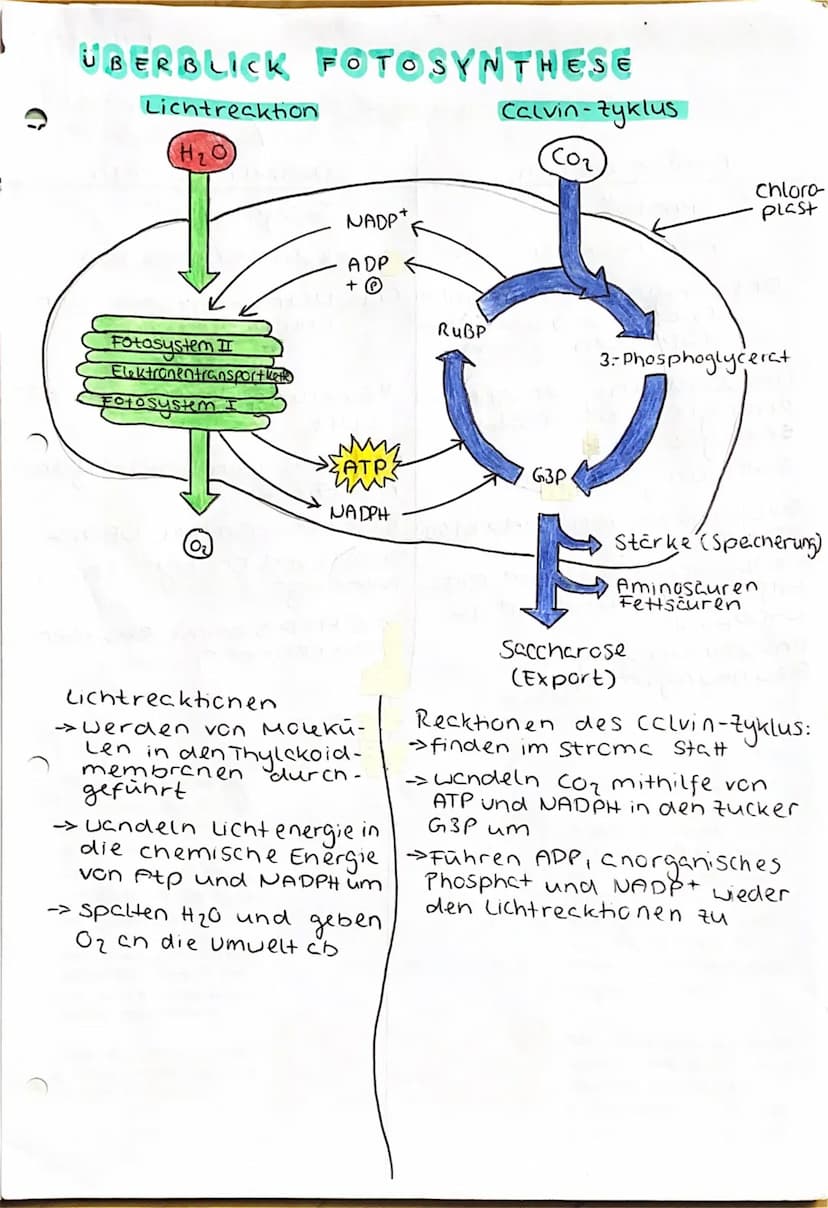 ÜBERBLICK FOTOSYNTHESE
Lichtreaktion
Calvin-Zyklus
H₂O
CO₂
Chloro-
plast
NADP⁺
ADP
+ Ⓟ
RuBP
3-Phosphoglycerat
Fotosystem II
Elektronentransportkette
Fotosystem I
ATP
G3P
NADPH
O₂
Stärke (Speicherung)
Aminosäuren
Fettsäuren
Saccharose
(Export)
Lichtreaktionen
→ werden von Molekü-
len in den Thylakoid-
membranen durch-
geführt
→ wandeln Lichtenergie in
die chemische Energie
von Atp und NADPH um
→ spalten H₂O und geben
O₂ an die Umwelt ab
Reaktionen des Calvin-Zyklus:
→ finden im Stroma statt
→ wandeln CO₂ mithilfe von
ATP und NADPH in den Zucker
G3P um
→ Führen ADP, anorganisches
Phosphat und NADP⁺ wieder
den Lichtreaktionen zu